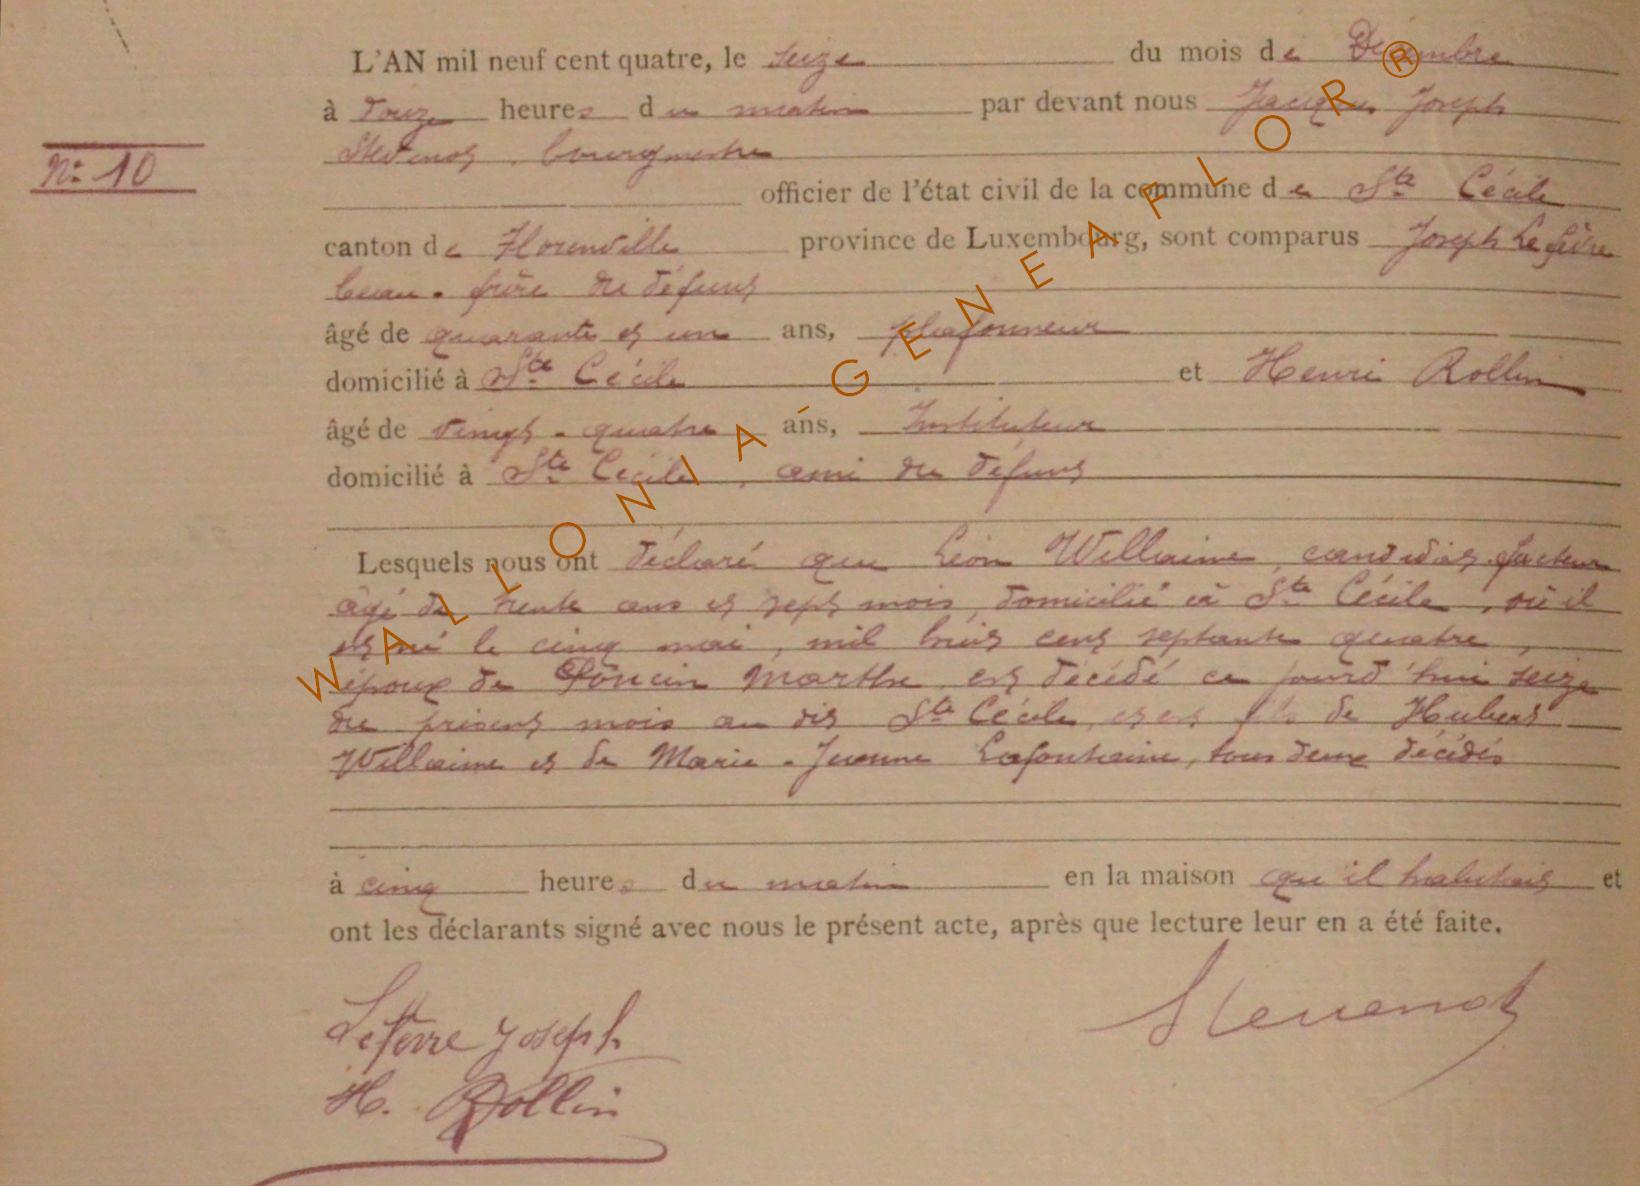 L'AN mil neuf cent quatre, le seize du mois de Décembre
à douze heures du matin par devant nous Jacques Joseph
Stevenot, bourgmestre
N° 10
officier de l'état civil de la commune de Ste Cécile
canton de Florenville province de Luxembourg, sont comparus Joseph Lefèvre
beau-frère du défunt
âgé de quarante et un ans, plafonneur
domicilié à Ste Cécile et Henri Rollin
âgé de vingt-quatre ans, Instituteur
domicilié à Ste Cécile, ami du défunt
Lesquels nous ont déclaré que Léon Willaime, candidat facteur
âgé de trente ans et sept mois, domicilié à Ste Cécile, où il
est né le cinq mai, mil huit cent septante quatre,
époux de Poncin Marthe, est décédé ce jourd'hui seize
du présent mois au dit Ste Cécile, et est fils de Hubert
Willaime et de Marie-Jeanne Lafontaine, tous deux décédés
à cinq heures du matin en la maison qu'il habitait et
ont les déclarants signé avec nous le présent acte, après que lecture leur en a été faite.
Lefèvre Joseph
Stevenot
H. Rollin
WALLONIA-GENEAFLOR®